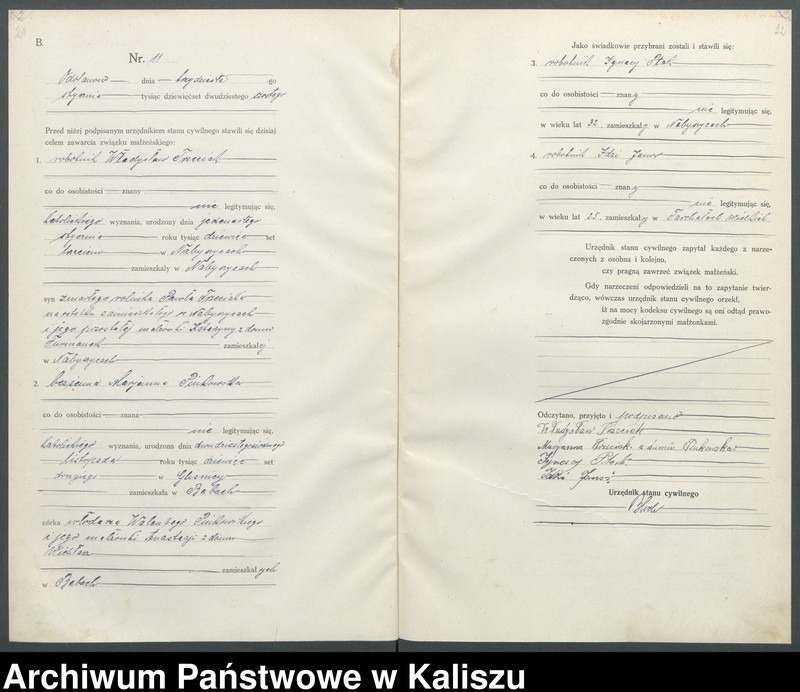 B.
Nr. 11
Odolanów dnia trzydziestego
stycznia tysiąc dziewięćset dwudziestego szóstego
Przed niżej podpisanym urzędnikiem stanu cywilnego stawili się dzisiaj
celem zawarcia związku małżeńskiego:
1. robotnik Władysław Trzeciak
co do osobistości znany
nie legitymując się,
katolickiego wyznania, urodzony dnia jedenastego
stycznia roku tysiąc dziewięć set
trzeciem w Nabyszycach
zamieszkały w Nabyszycach
syn zmarłego rolnika Pawła Trzeciaka
na ostatku zamieszkałego w Nabyszycach
i jego pozostałej małżonki Katarzyny z domu
Furmanek zamieszkałej
w Nabyszycach
2. bezsenna Marjanna Pinkowska
co do osobistości znana
nie legitymując się,
katolickiego wyznania, urodzona dnia dwudziestegosiódmego
listopada roku tysiąc dziewięć set
drugiego w Gliśnicy
zamieszkała w Babach
córka włodarza Walentego Pinkowskiego
i jego małżonki Anastazji z domu
zamieszkałych
w Babach
22
Jako świadkowie przybrani zostali i stawili się:
3. robotnik Ignacy Ptak
co do osobistości znany
nie legitymując się,
w wieku lat 32 zamieszkały w Nabyszycach
4. robotnik Idzi Janoś
co do osobistości znany
nie legitymując się,
w wieku lat 25 zamieszkały w Tarchałach wielkich
Urzędnik stanu cywilnego zapytał każdego z narze-
czonych z osobna i kolejno,
czy pragną zawrzeć związek małżeński.
Gdy narzeczeni odpowiedzieli na to zapytanie twier-
dząco, wówczas urzędnik stanu cywilnego orzekł,
iż na mocy kodeksu cywilnego są oni odtąd prawo-
zgodnie skojarzonymi małżonkami.
Odczytano, przyjęto i podpisano
Władysław Trzeciak
Maryanna Trzeciak z domu Pinkowska
Ignacy Ptak
Idzi Janoś
Urzędnik stanu cywilnego
Archiwum Państwowe w Kaliszu